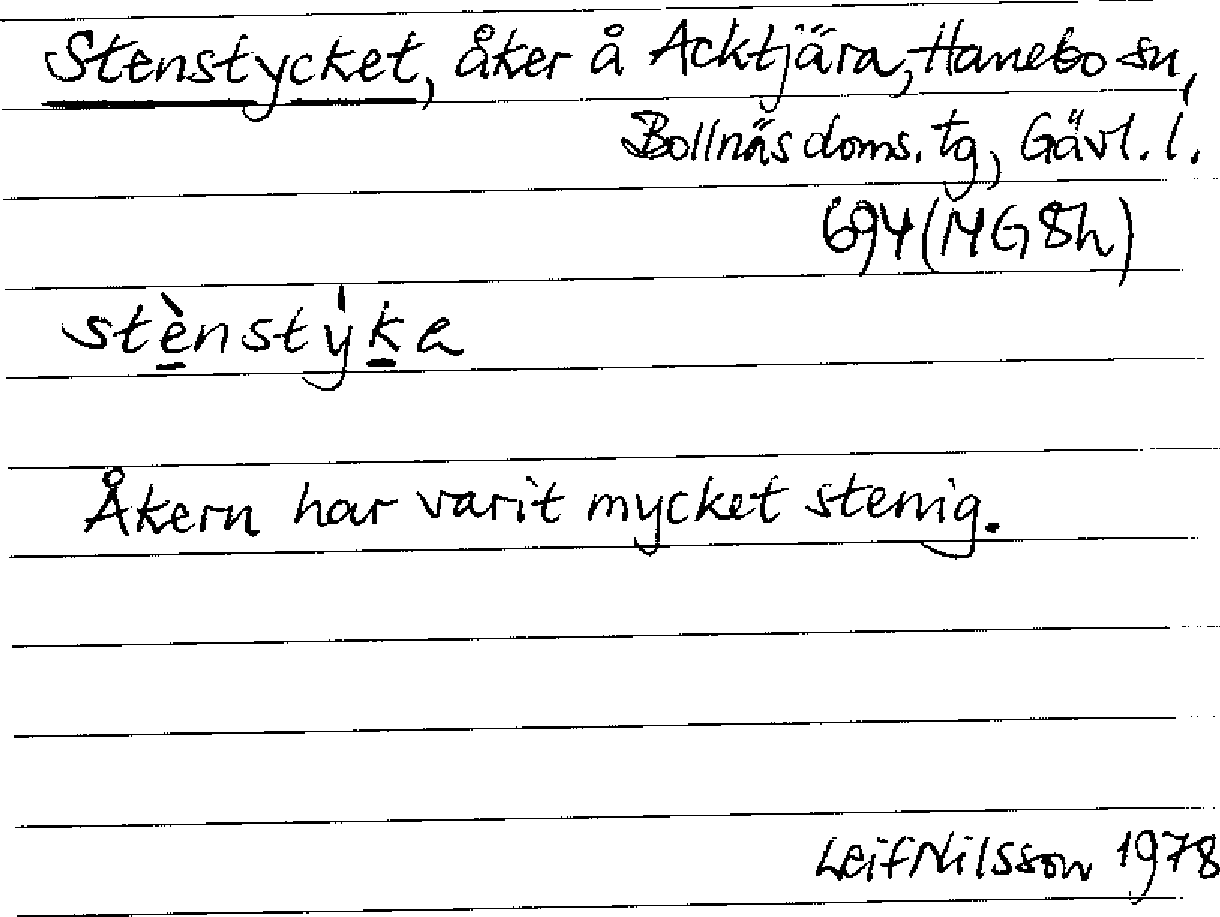 Stenstycket, åker å Acktjära, Hanebo sn,
Bollnäs doms. tg, Gävl. l.
694 (14G 8h)
stènstýke
Åkern har varit mycket stenig.
Leif Nilsson 1978